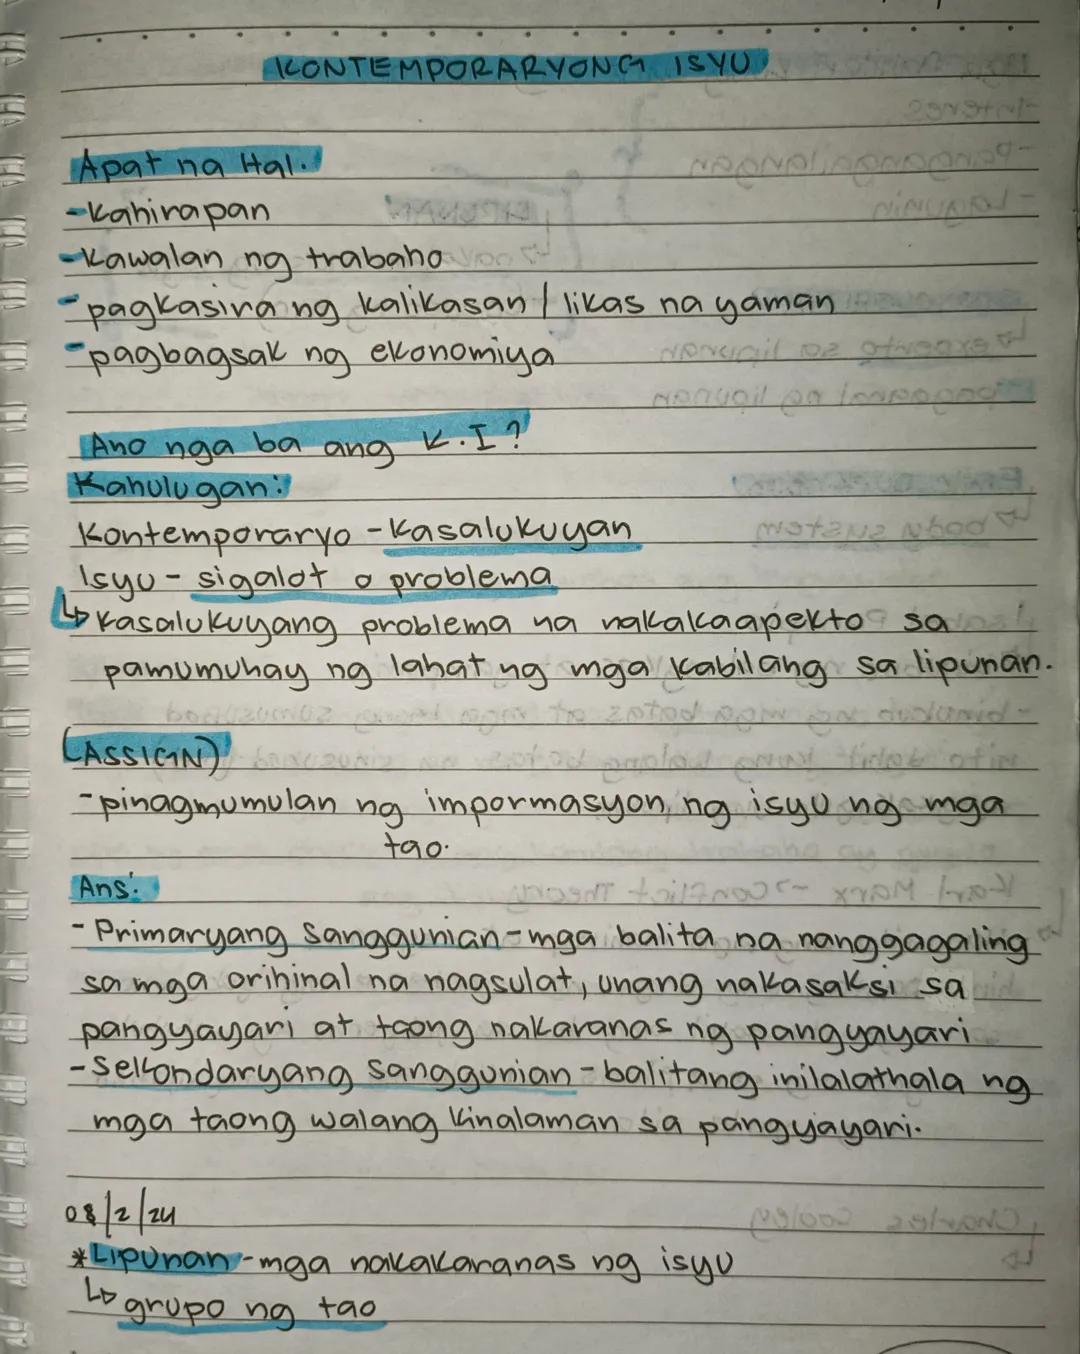 KONTEMPORARYONG ISYU
Apat na Hal.
-Kahirapan
-Kawalan ng trabaho
-pagkasira ng kalikasan / likas na yaman
-pagbagsak ng ekonomiya
Ano nga ba ang K.I?
Kahulugan:
Kontemporaryo - Kasalukuyan
Isyu - sigalot o problema
↳ Kasalukuyang problema na nakakaapekto sa
pamumuhay ng lahat ng mga kabilang sa lipunan.
(ASSIGN)
-pinagmumulan ng impormasyon, ng isyu ng mga
tao.
Ans:
- Primaryang Sanggunian - mga balita na nanggagaling
sa mga orihinal na nagsulat, unang nakasaksi sa
pangyayari at taong nakaranas ng pangyayari
- Sekondaryang Sanggunian - balitang inilalathala ng
mga taong walang kinalaman sa pangyayari.
08/2/24
*Lipunan - mga nakakaranas ng isyu
↳ grupo ng tao